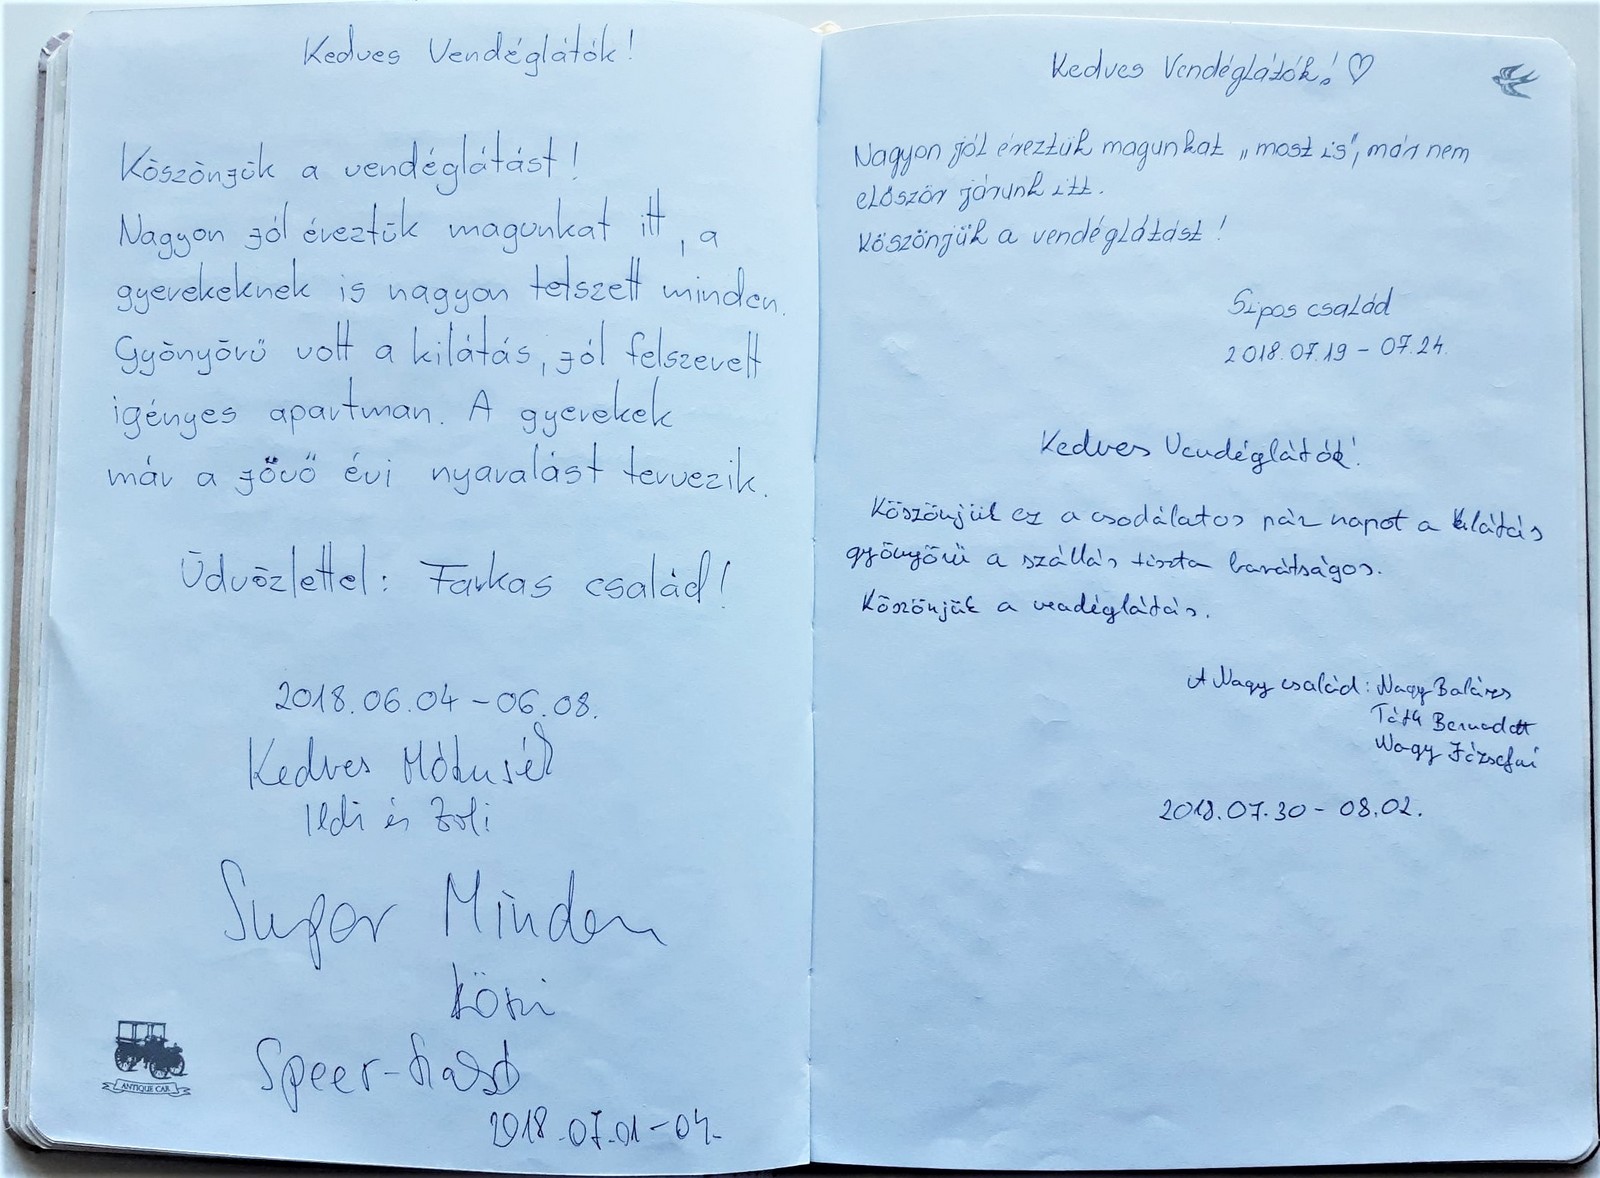 Kedves Vendéglátók!
Köszönjük a vendéglátást!
Nagyon jól éreztük magunkat itt, a
gyerekeknek is nagyon tetszett minden.
Gyönyörű volt a kilátás, jól felszerelt
igényes apartman. A gyerekek
már a jövő évi nyaralást tervezik.
Üdvözlettel: Farkas család!
2018.06.04-06.08.
Kedves
Ildi és Zoli
Super Minden
Köszi
Speer-
2018.07.01-04.
ANTIQUE CAR
Kedves Vendéglátók! ♡
Nagyon jól éreztük magunkat „most is", már nem
először járunk itt.
Köszönjük a vendéglátást!
Sipos család
2018.07.19 - 07.24.
Kedves Vendéglátók!
Köszönjük ez a csodálatos pár napot a kilátás
gyönyörű a szállás tiszta barátságos.
Köszönjük a vendéglátás.
A Nagy család: Nagy Balázs
Tóth Bernadett
Nagy Józsefné
2018.07.30 - 08.02.